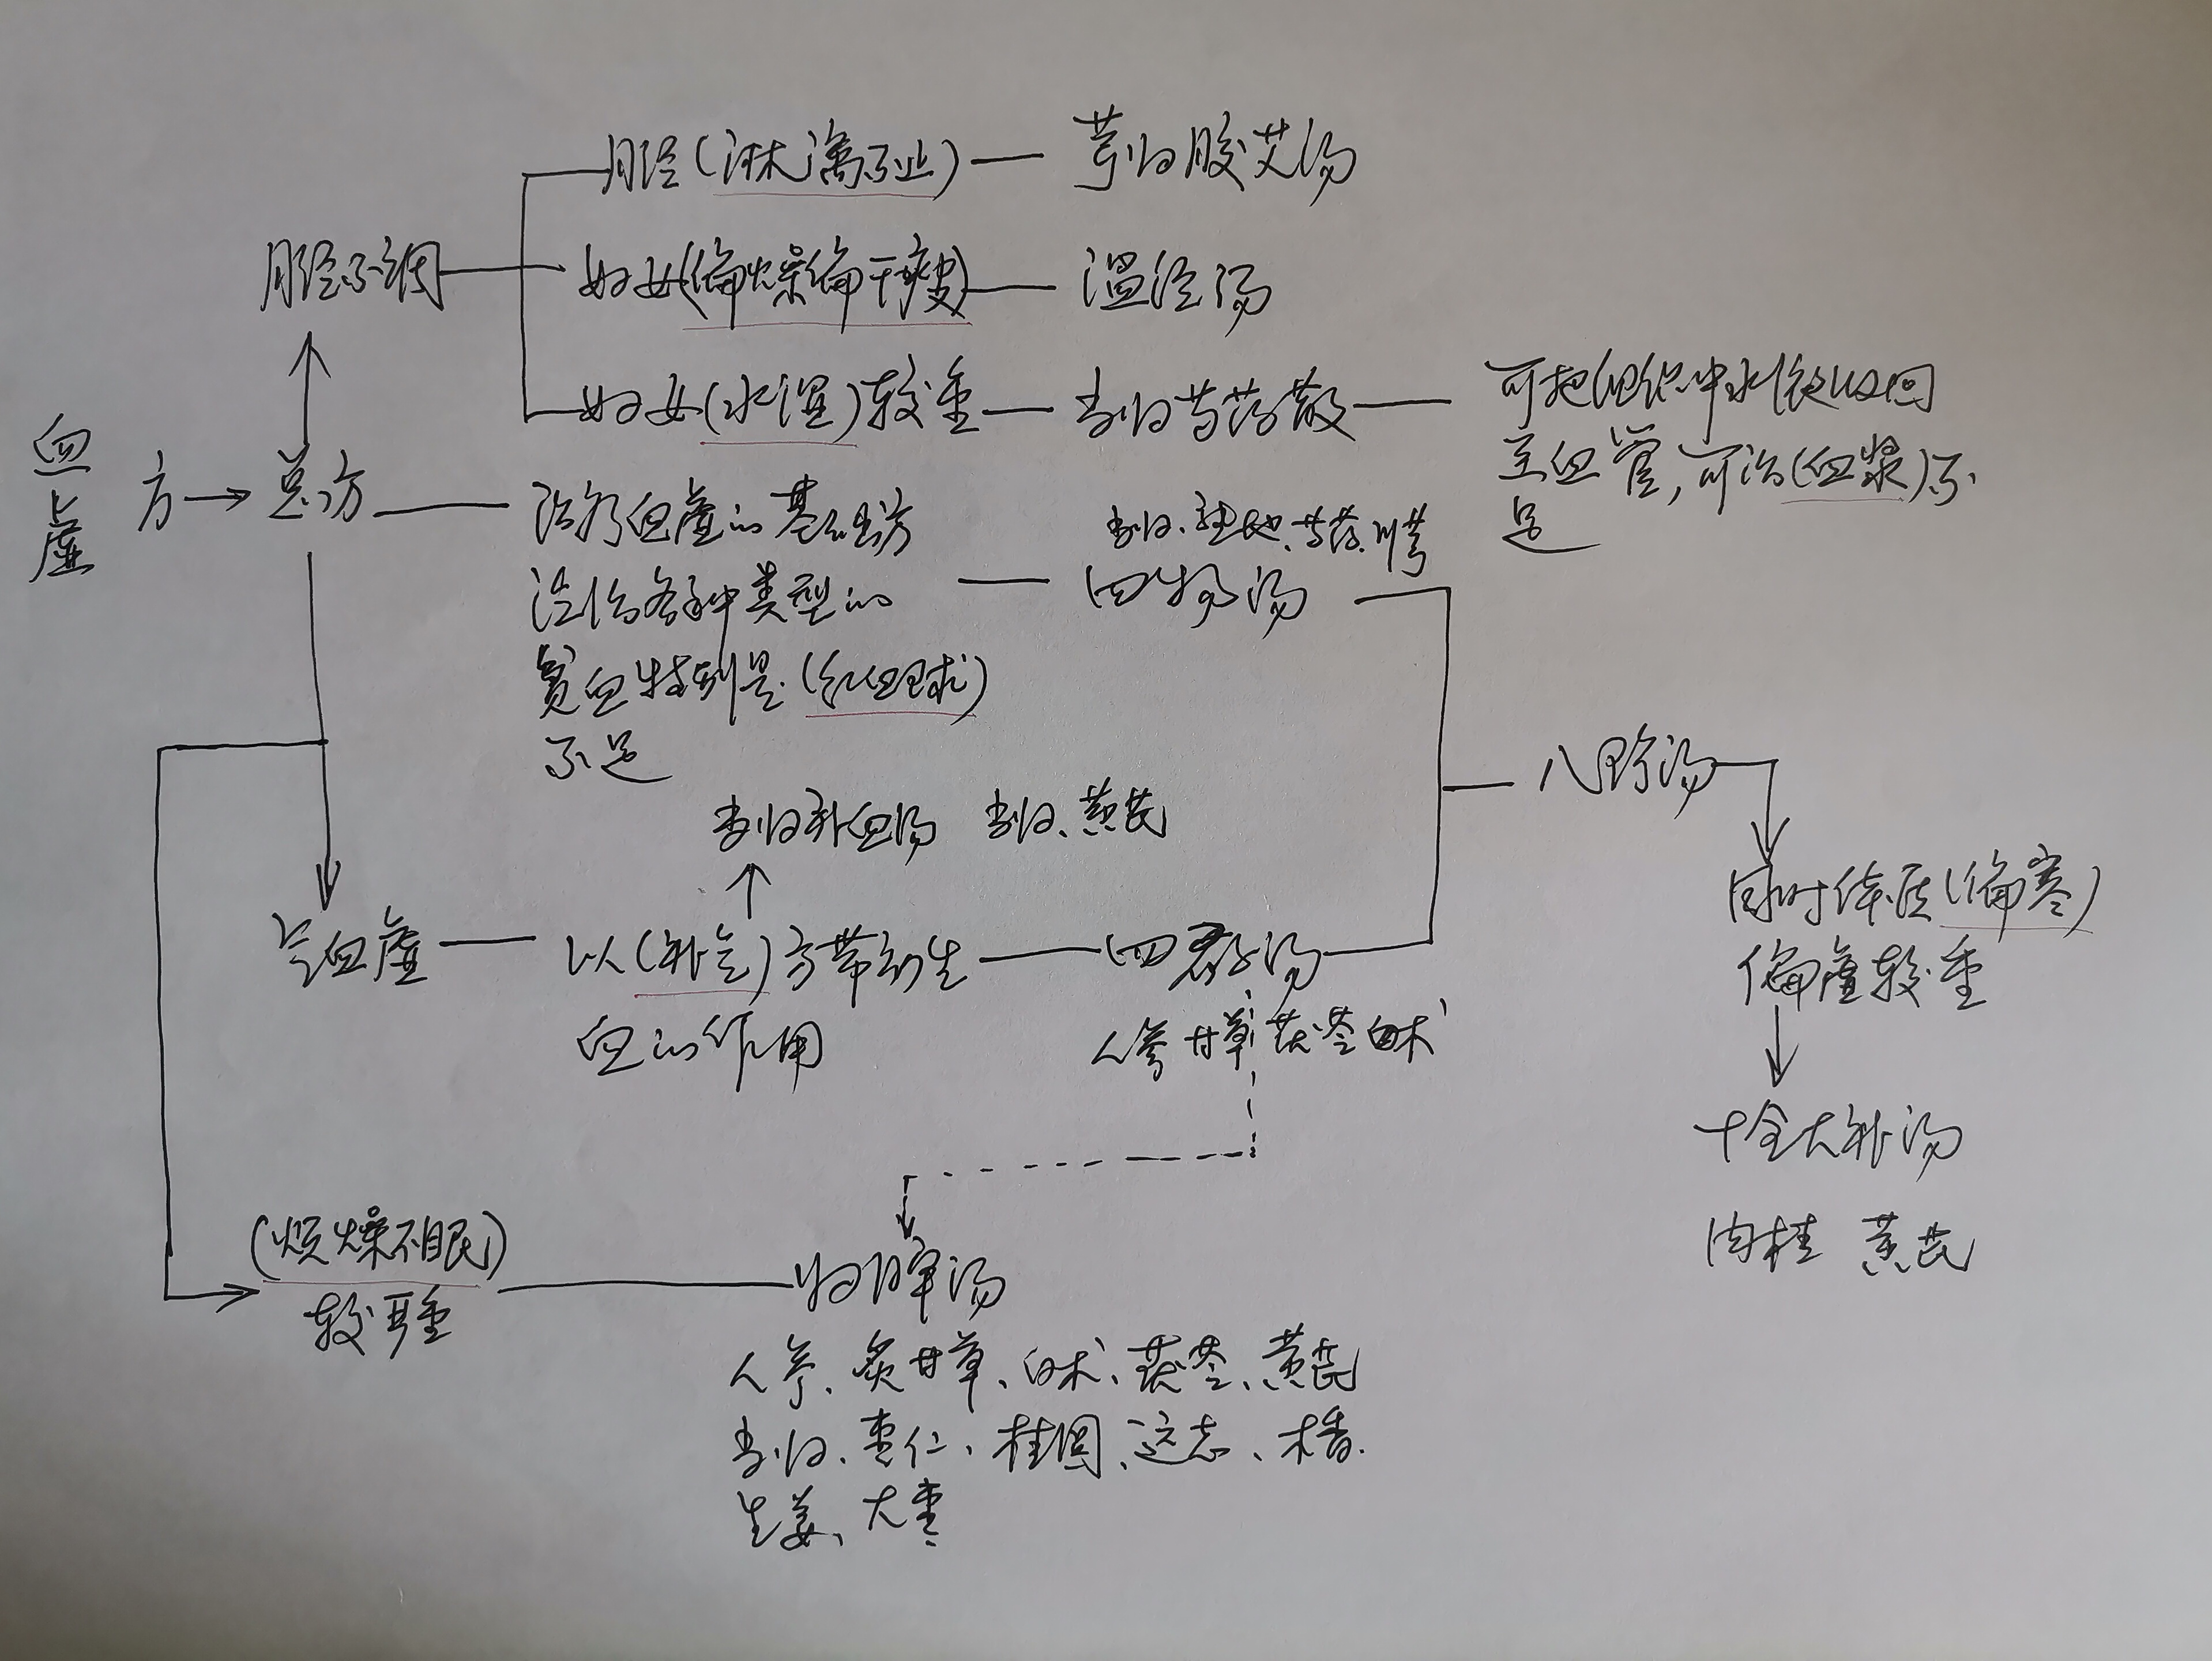 月经(淋漓不止)
芎归胶艾汤
月经不调
妇女(偏燥偏干瘦)
温经汤
妇女(水湿)较重
当归芍药散
可把组织中水液收回
至血管,可治(血浆)不
足
血虚
方
总方
治疗血虚的基础方
治各种类型的
贫血特别是(红血球)
不足
当归、熟地、芍药、川芎
四物汤
八珍汤
当归补血汤 当归、黄芪
同时体质(偏寒)
偏虚较重
气血虚
以(补气)方带动生
血的作用
四君子汤
人参 甘草 茯苓 白术
十全大补汤
肉桂 黄芪
(烦燥不眠)
较重
归脾汤
人参、炙甘草、白术、茯苓、黄芪
当归、枣仁、桂圆、远志、木香.
生姜、大枣